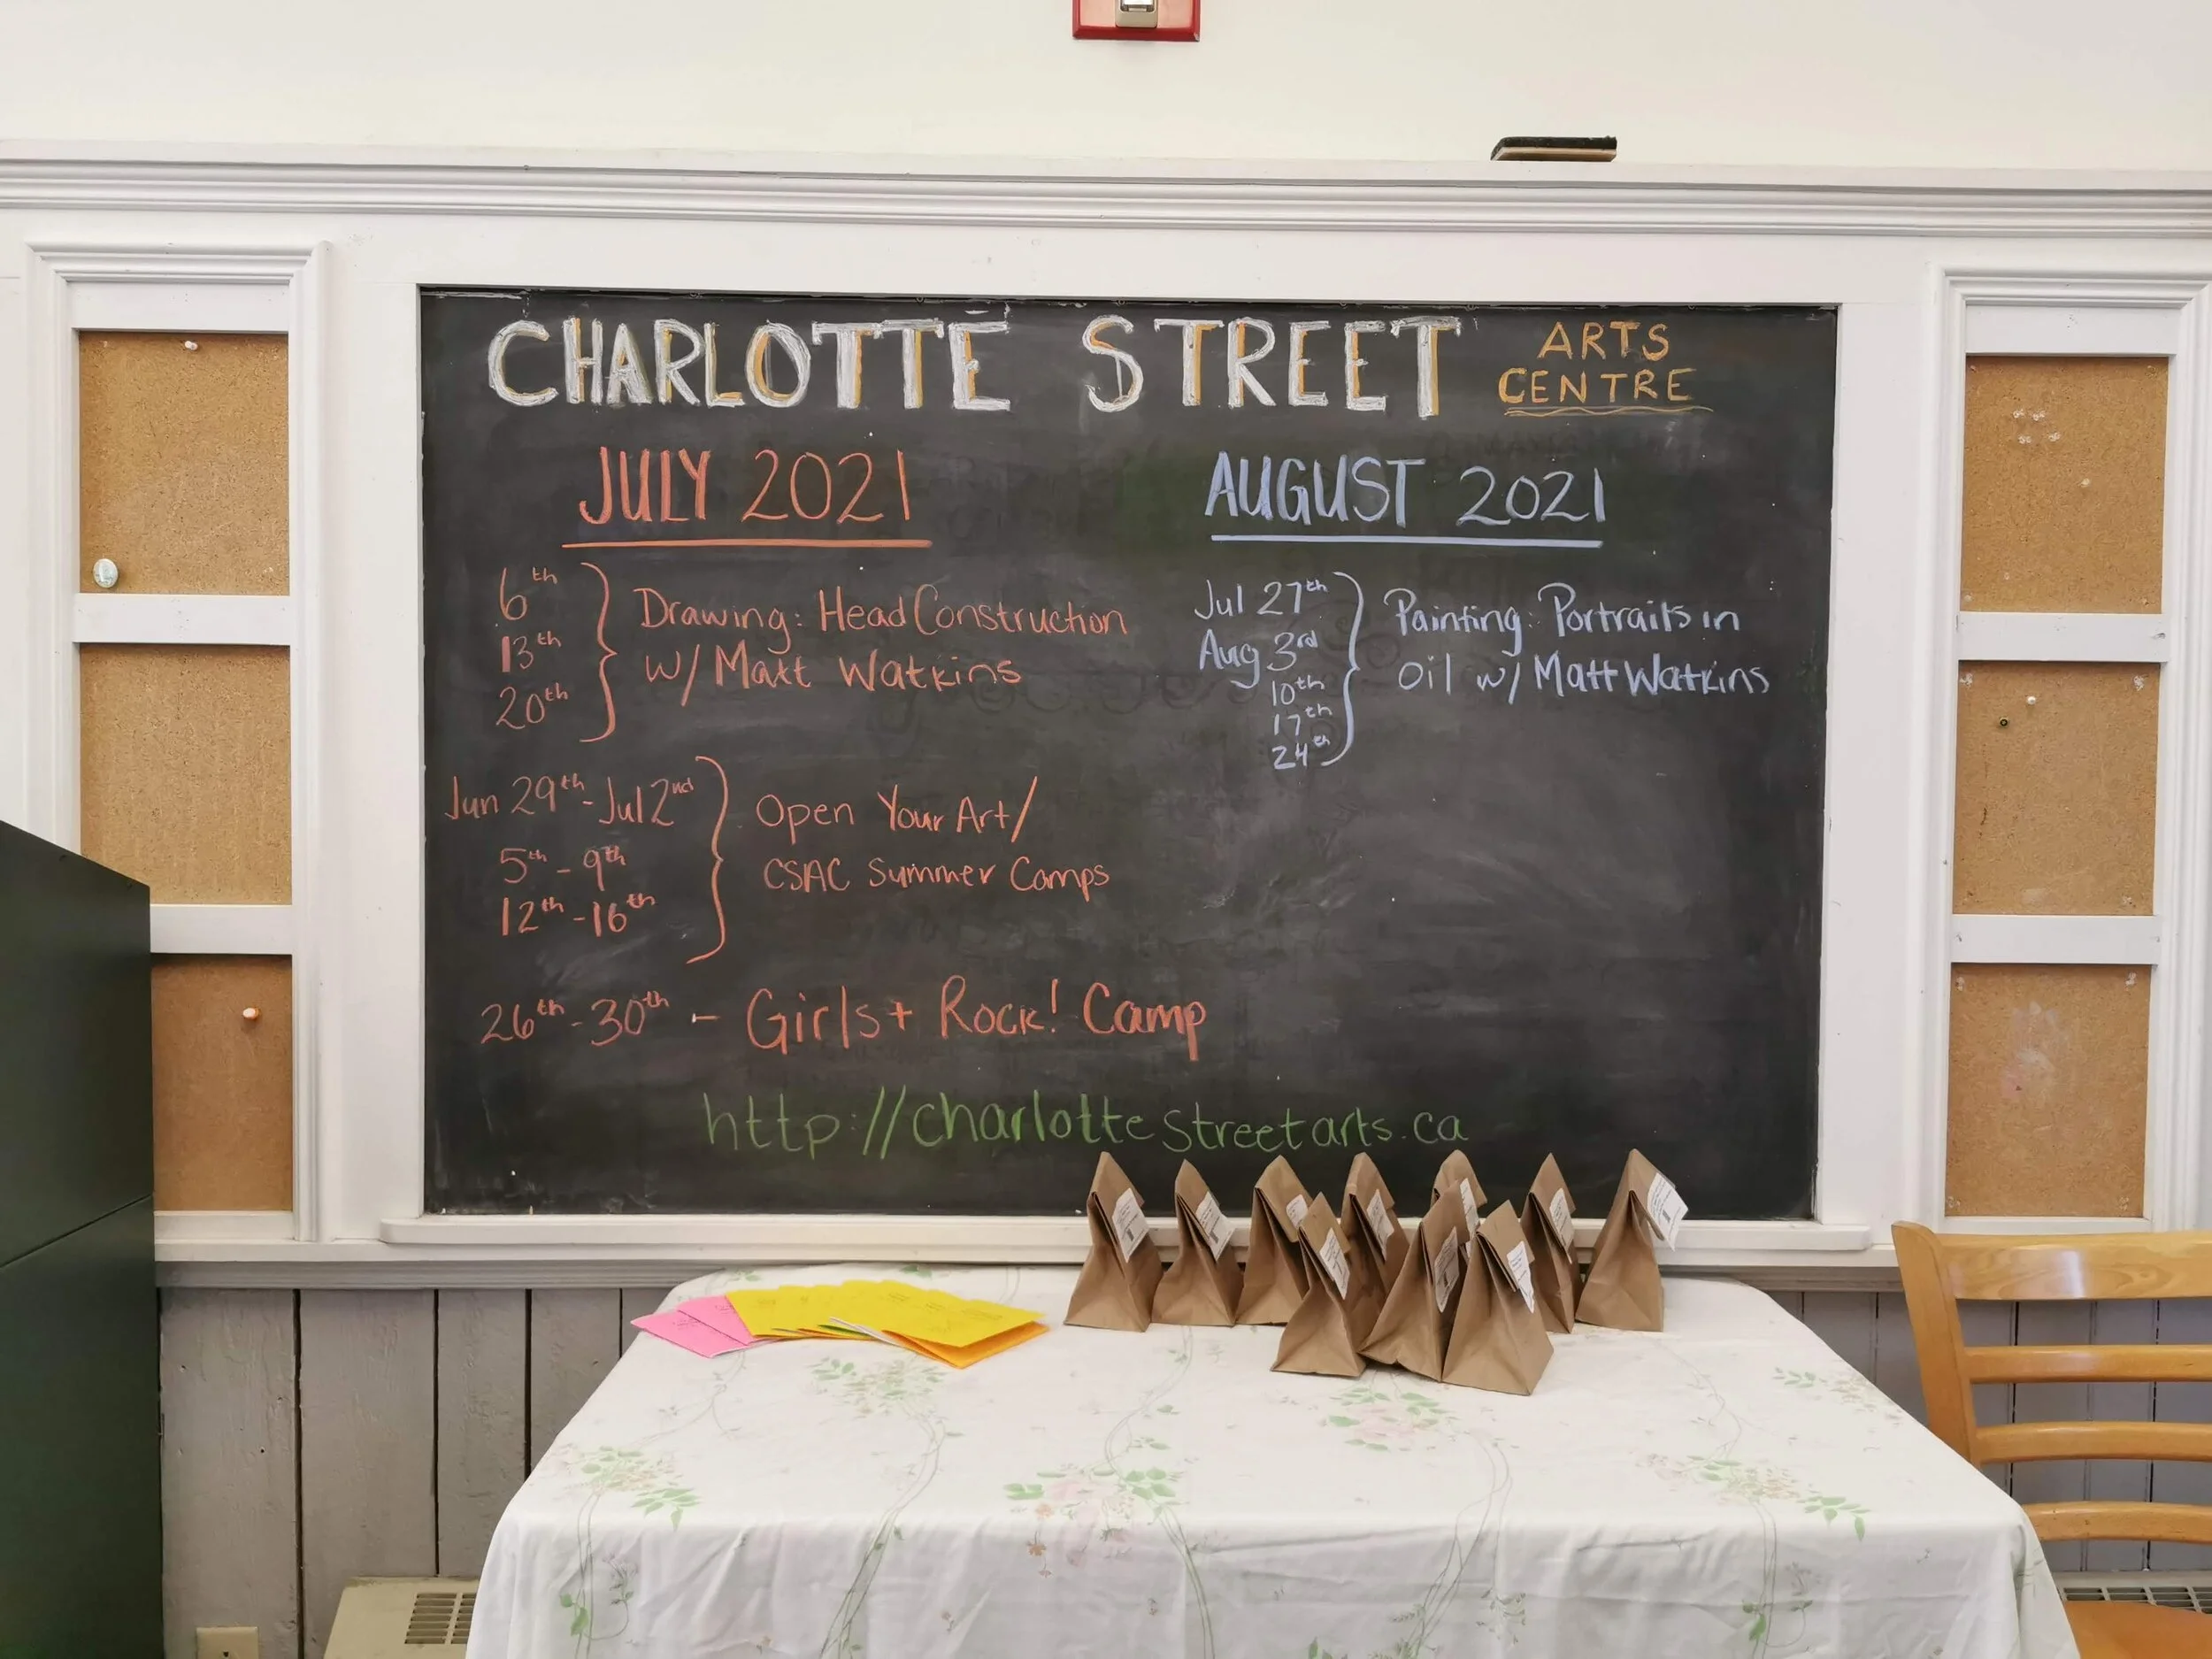 CHARLOTTE STREET ARTS CENTRE
JULY 2021
6th
13th
20th
Drawing: Head Construction
w/ Matt Watkins
Jun 29th - Jul 2nd
5th - 9th
12th - 16th
Open Your Art/
CSAC Summer Camps
26th - 30th - Girls+ Rock! Camp
AUGUST 2021
Jul 27th
Aug 3rd
10th
17th
24th
Painting: Portraits in
Oil w/ Matt Watkins
http://charlottestreetarts.ca